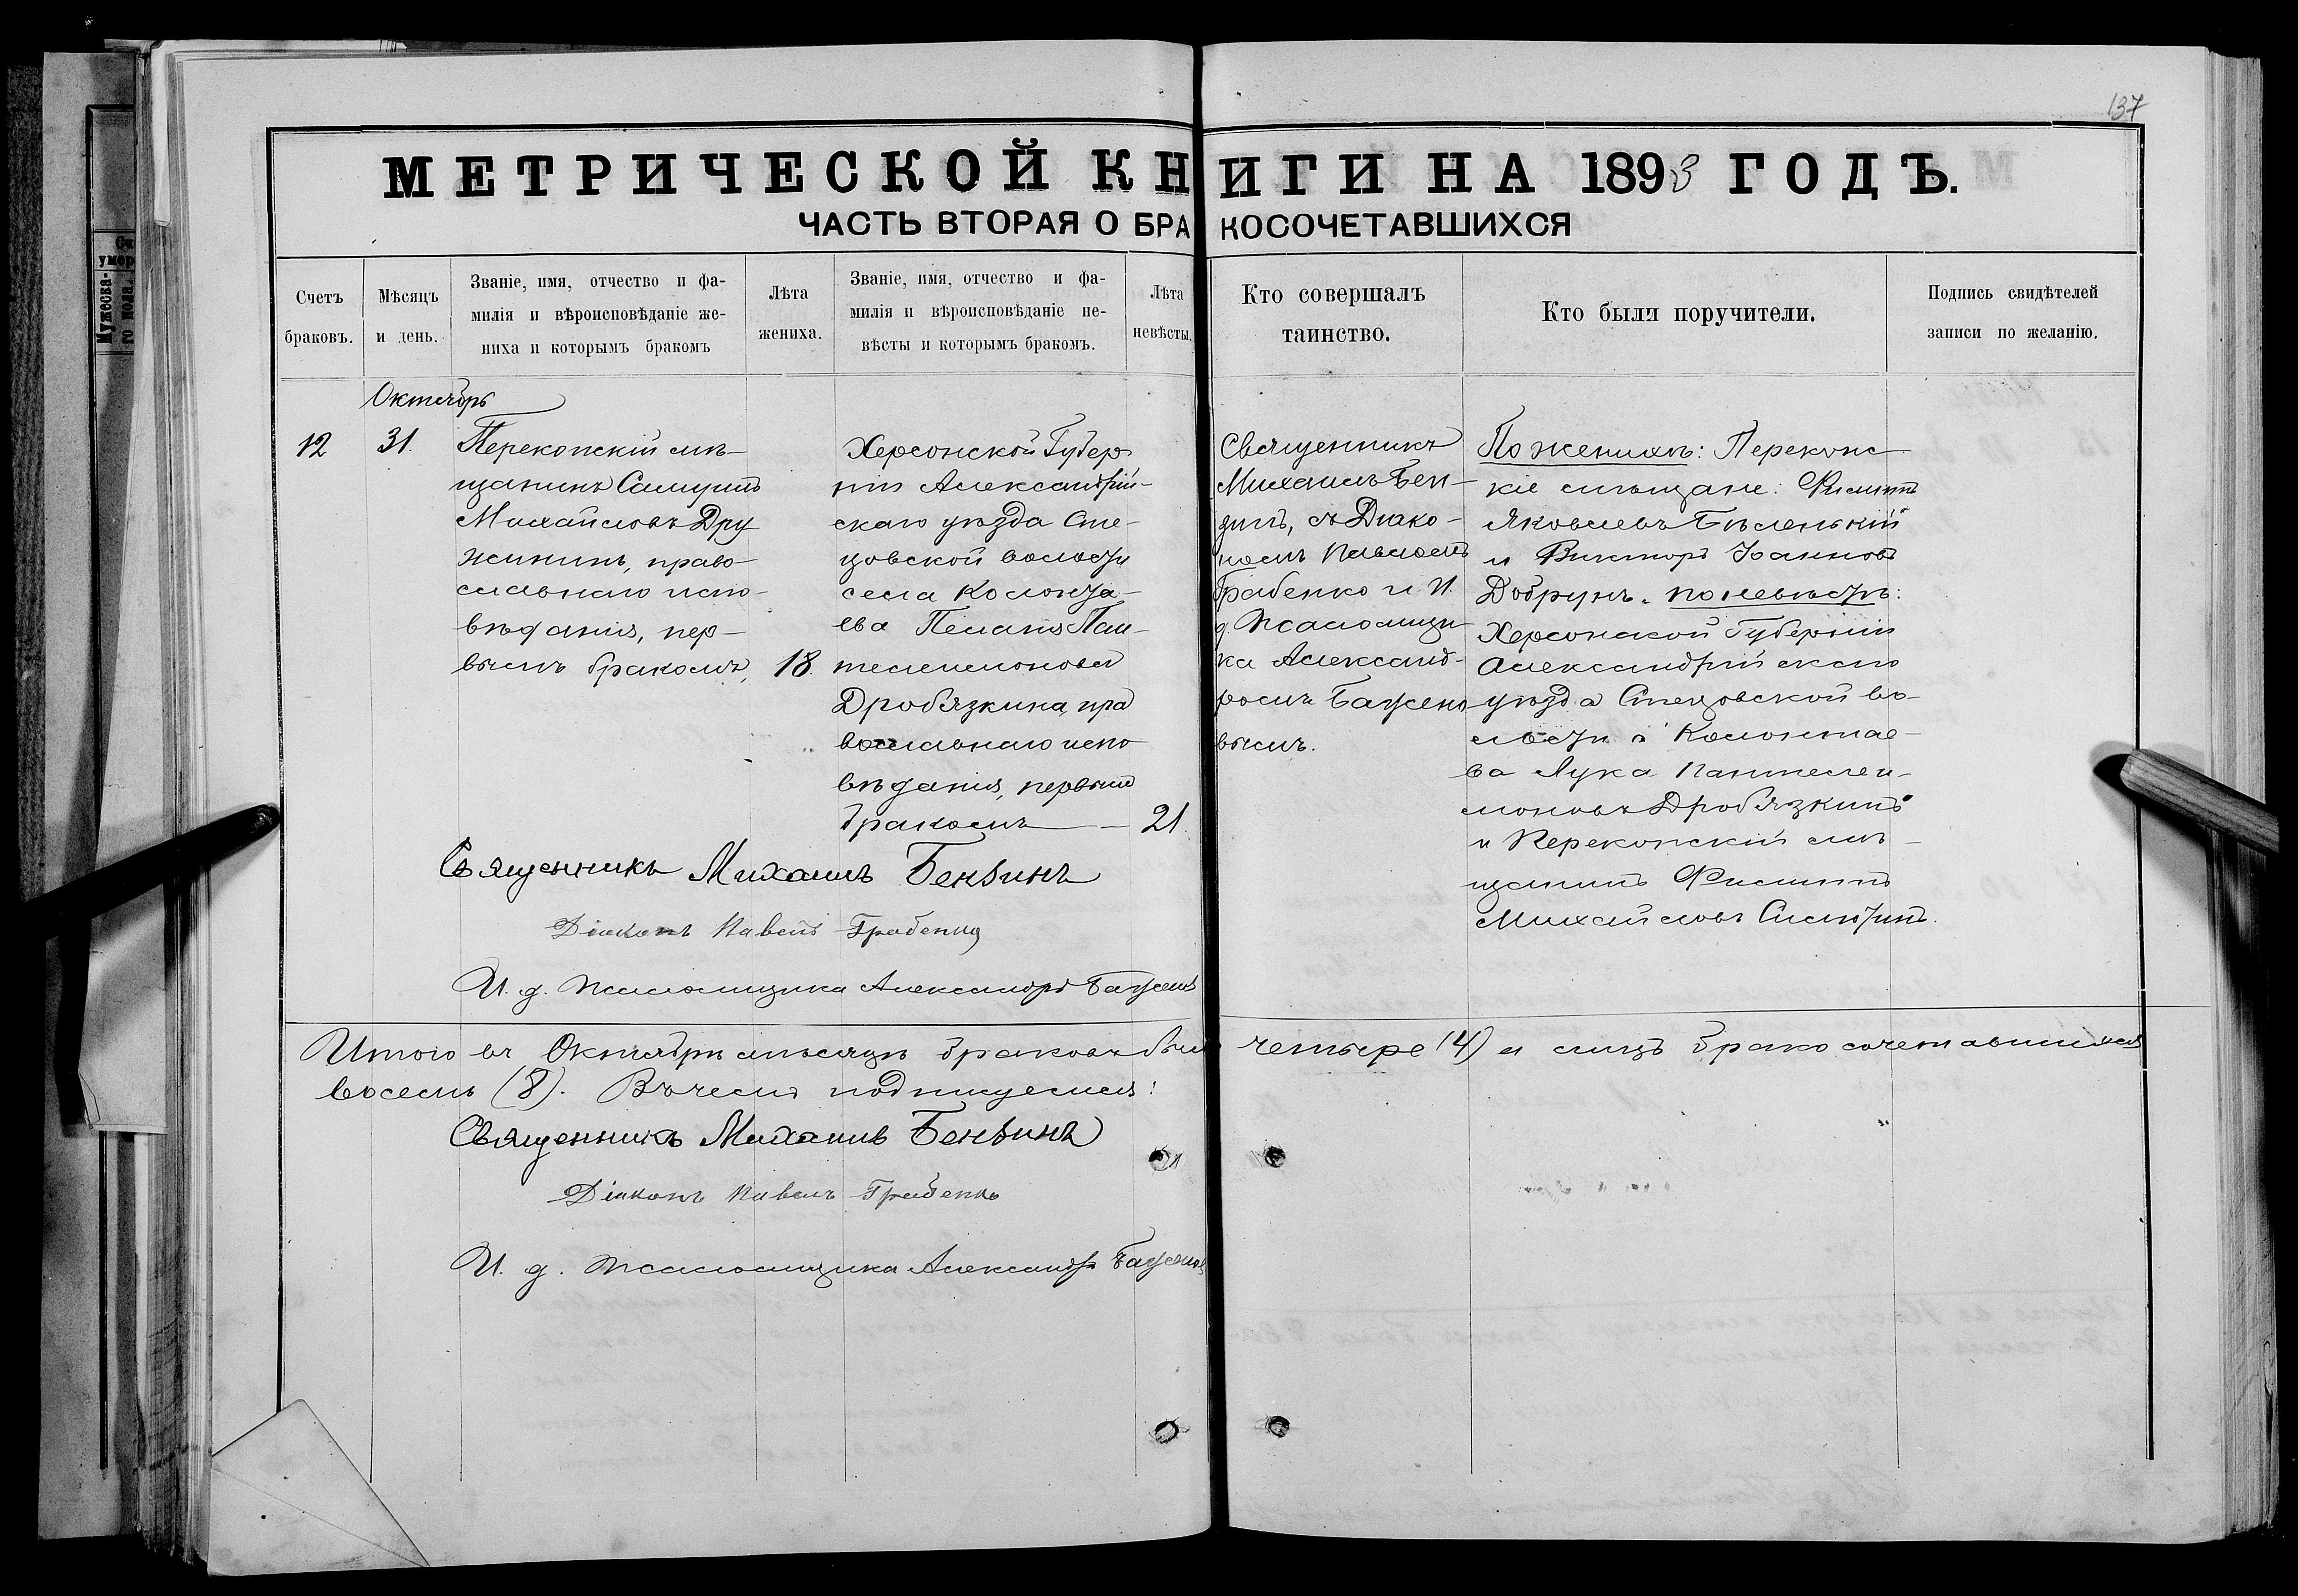 137
МЕТРИЧЕСКОЙ КНИГИ НА 1893 ГОДЪ.
ЧАСТЬ ВТОРАЯ О БРАКОСОЧЕТАВШИХСЯ
Счетъ
браковъ.
Мѣсяцъ
и день.
Званіе, имя, отчество и фа-
милія и вѣроисповѣданіе же-
ниха и которымъ бракомъ
Лѣта
жениха.
Званіе, имя, отчество и фа-
милія и вѣроисповѣданіе не-
вѣсты и которымъ бракомъ.
Лѣта
невѣсты.
Кто совершалъ
таинство.
Кто были поручители.
Подпись свидѣтелей
записи по желанію.
Октябрь
12
31.
Перекопскій мѣ-
щанинъ Самуилъ
Михайловъ Дру
жининъ, право-
славнаго испо-
вѣданія, пер-
вымъ бракомъ,
18.
Херсонской Губер
ніи Александрій-
скаго уѣзда Сте-
цовской волости
села Колонта-
ева Пелагія Пан-
телеимонова
Дробязкина, пра
вославнаго испо
вѣданія, первымъ
бракомъ
21.
Священникъ
Михаилъ Бен-
зинъ, съ Діако-
номъ Павломъ
Грабенко и И.
д. Псаломщи-
ка Александ-
ромъ Бажено-
вымъ.
По женихѣ: Перекопс-
кіе мѣщане: Филиппъ
Яковлевъ Бѣленькій
и Викторъ Іоанновъ
Добрунъ. по невѣстѣ:
Херсонской Губерніи
Александрійскаго
уѣзда Стецовской во-
лости с. Колонтае-
ва Лука Пантелеи-
моновъ Дробязкинъ
и Перекопскій мѣ-
щанинъ Филиппъ
Михайловъ
Священникъ Михаилъ Бензинъ
Діаконъ Павелъ Грабенко
И. д. Псаломщика Александръ Баженовъ
Итого въ Октябрѣ мѣсяцѣ браковъ было четыре (4) а лицъ бракосочетавшихся
восемь (8). Въ чемъ подписуемся:
Священникъ Михаилъ Бензинъ
Діаконъ Павелъ Грабенко
И. д. Псаломщика Александръ Баженовъ